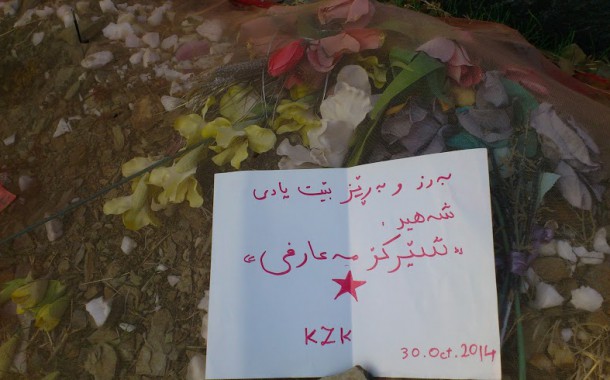 بەرز و بەڕێز بێت یادی
شەهید.
«شێرکۆ مەعارفی»
KZK
30.Oct.2014